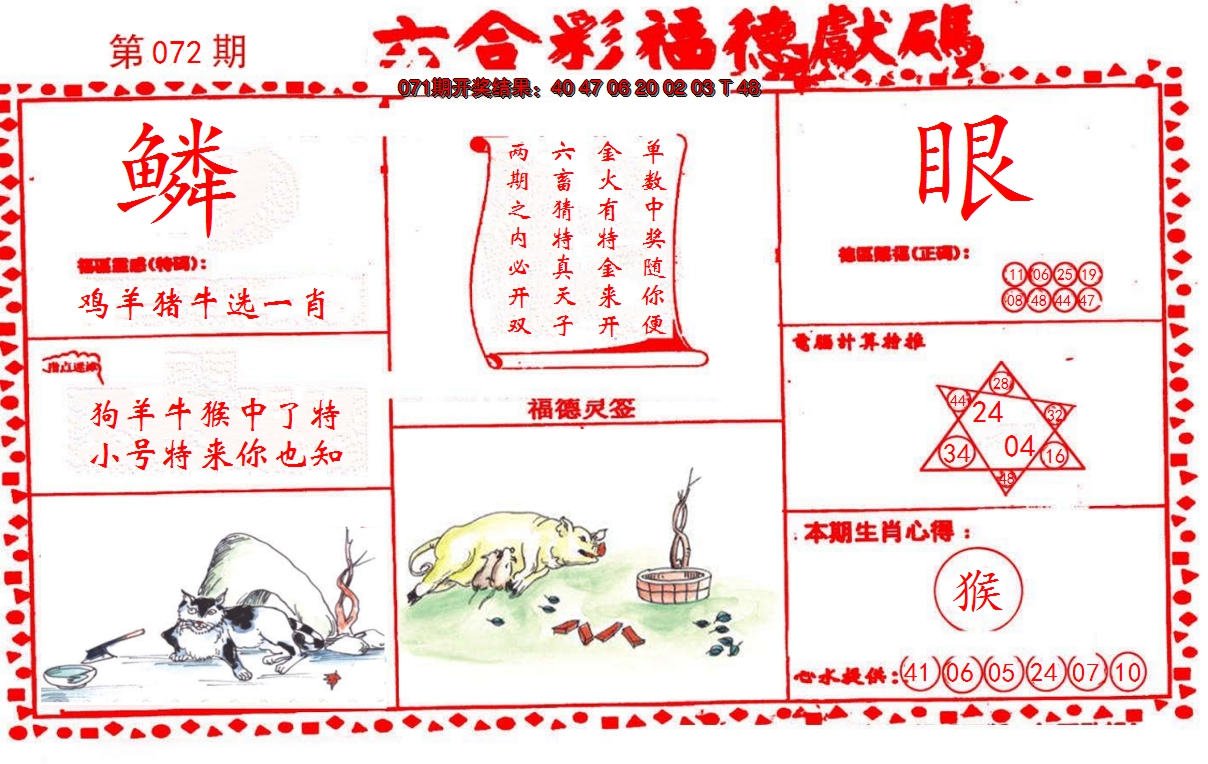 第 072 期
六合彩福德獻碼
071期开奖结果：40 47 06 20 02 03 T 48
鳞
福區靈感(特碼)：
鸡羊猪牛选一肖
指点迷津
狗羊牛猴中了特
小号特来你也知
单数中奖随你便
金火有特金来开
六畜猜特真天子
两期之内必开双
福德灵签
眼
德區賜福(正碼)：
11 06 25 19
08 48 44 47
電腦計算拾推
28
44 24 32
34 04 16
48
本期生肖心得：
猴
心水提供：41 06 05 24 07 10